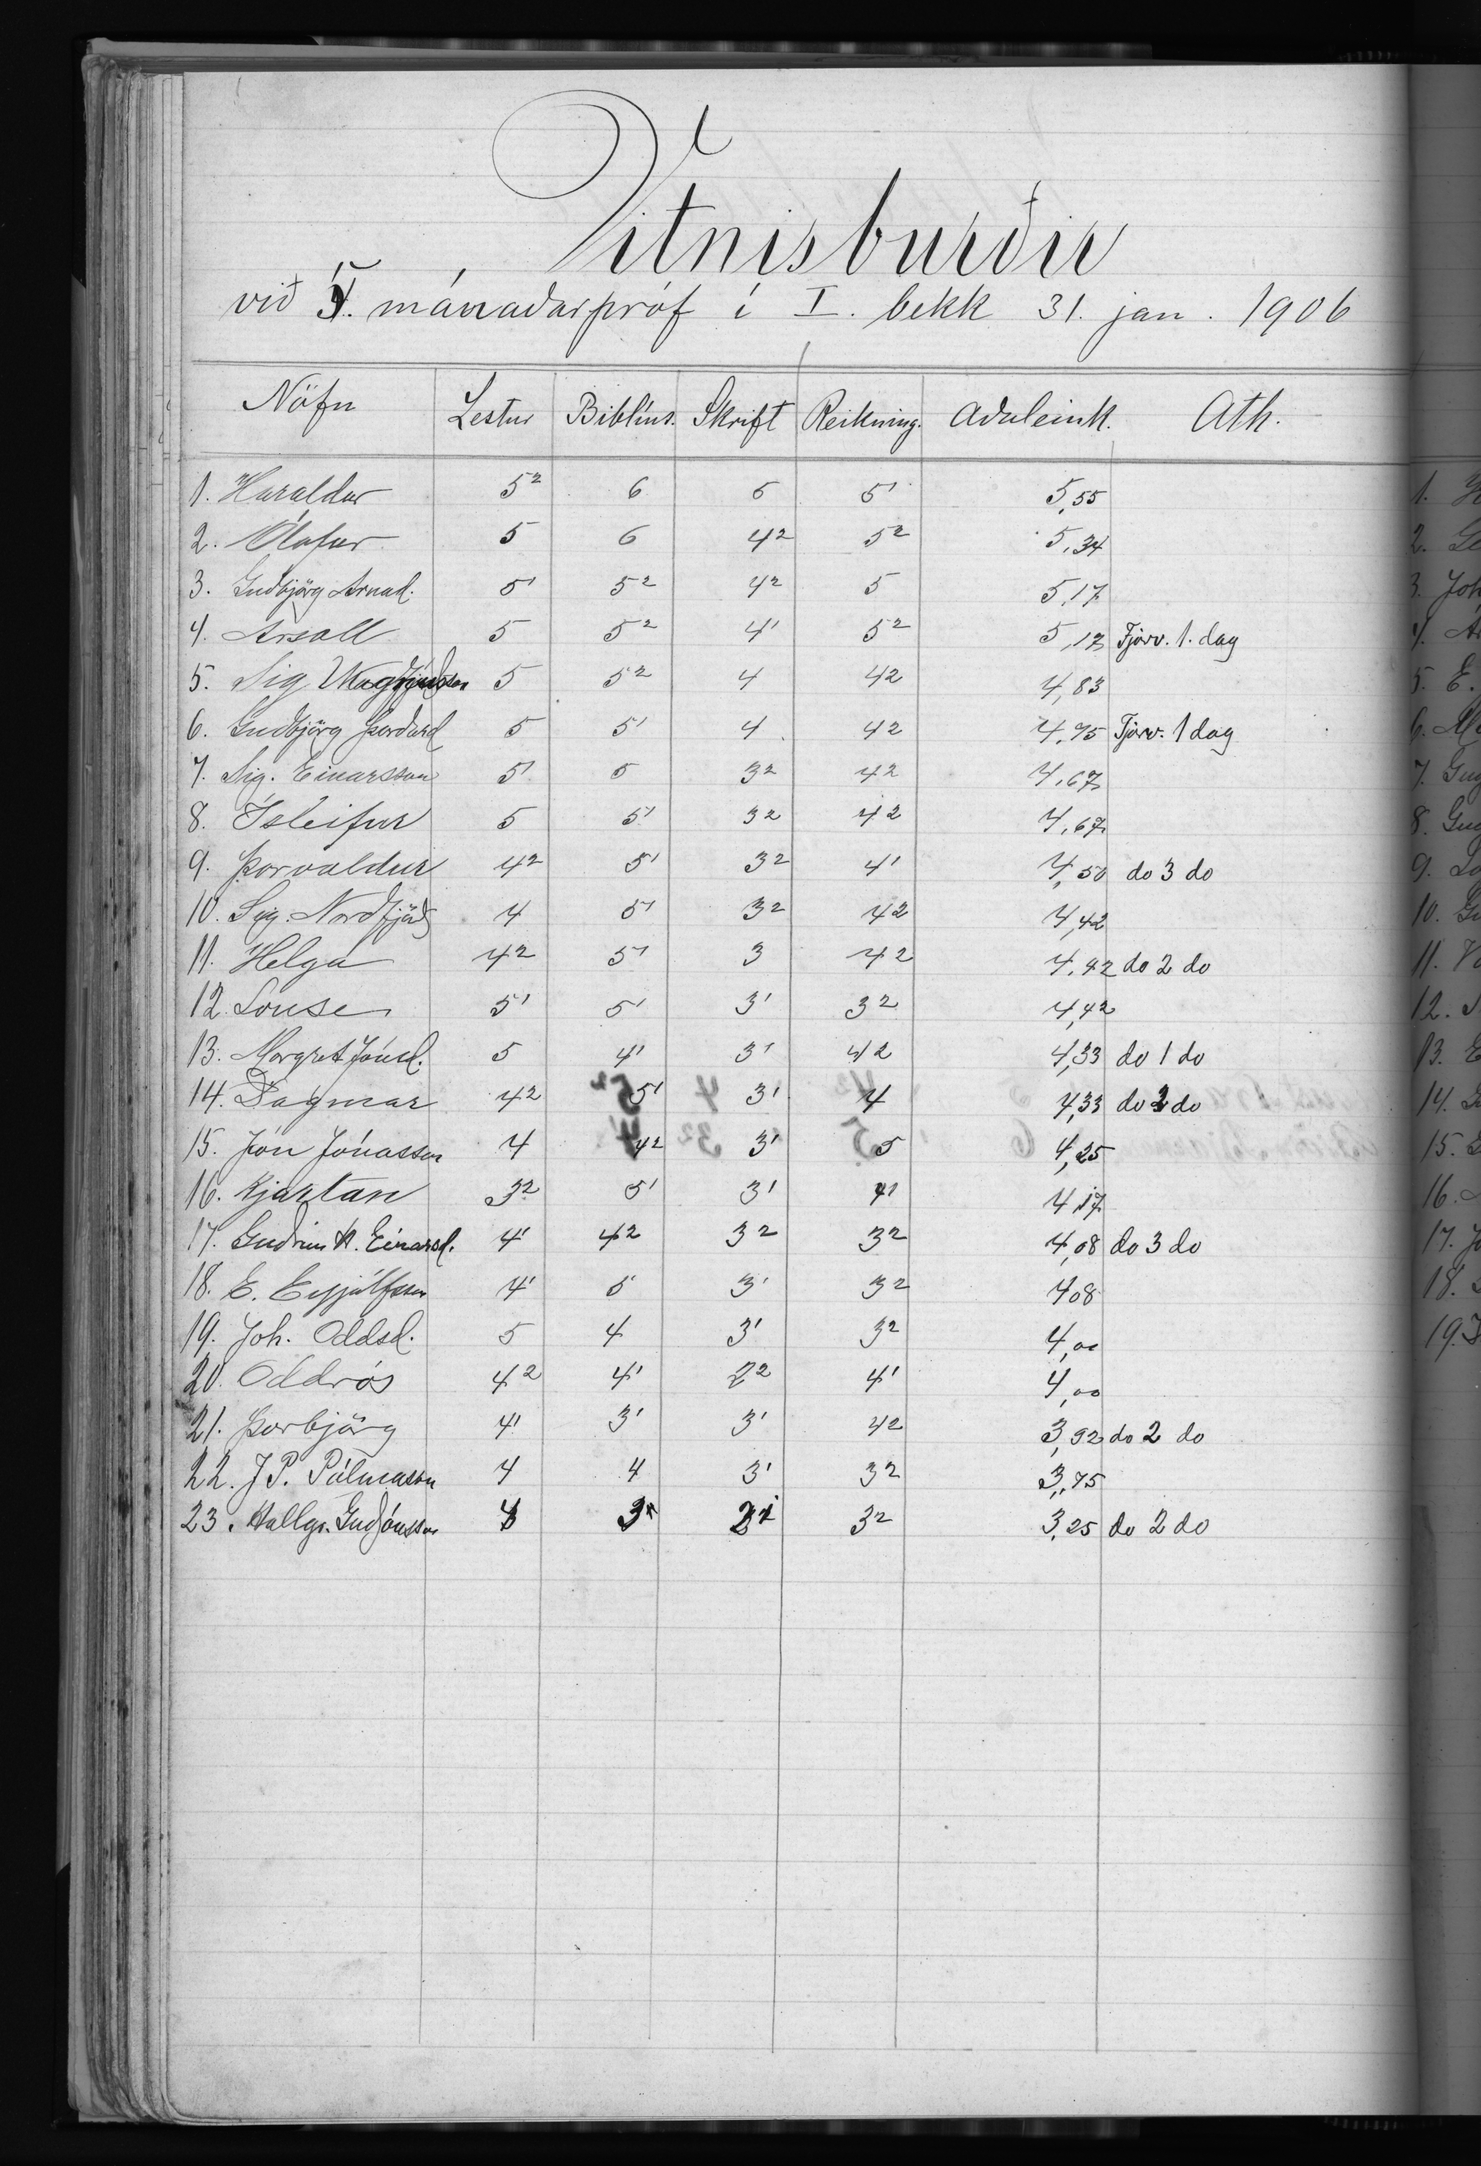 Vitnisburðir
við 5. mánaðarpróf í I. bekk 31. jan. 1906
Nöfn Lestur Biblíus. Skrift Reikning. Aðaleink. Ath.
1. Haraldur 5² 6 5 5¹ 5,55
2. Ólafur 5 6 4² 5² 5,34
3. Guðbjörg Arnad. 5¹ 5² 4² 5 5,17
4. Ársæll 5 5² 4¹ 5² 5,17 Fjarv. 1. dag
5. Sig 5 5² 4 4² 4,83
6. Guðbjörg Þorðard 5 5¹ 4 4² 4,75 Fjarv. 1 dag
7. Sig. Einarsson 5¹ 5 3² 4² 4,67
8. Ísleifur 5 5¹ 3² 4² 4,67
9. Þorvaldur 4² 5¹ 3² 4¹ 4,50 do 3 do
10. Sig. Norðfjörð 4 5¹ 3² 4² 4,42
11. Helga 4² 5¹ 3 4² 4,42 do 2 do
12. Louise 5¹ 5¹ 3¹ 3² 4,42
13. Margret Jónsd. 5 4¹ 3¹ 4² 4,33 do 1 do
14. Dagmar 4² 5¹ 3¹ 4 4,33 do do
15. Jón Jónasson 4 4² 3¹ 5 4,25
16. Kjartan 3² 5¹ 3¹ 4¹ 4,17
17. Guðrún A. Einarsd. 4¹ 4² 3² 3² 4,08 do 3 do
18. E. Eyjúlfsson 4¹ 5 3¹ 3² 4,08
19. Joh. Oddsd. 5 4 3¹ 3² 4,00
20. Oddrós 4² 4¹ 2² 4¹ 4,00
21. Þorbjörg 4¹ 3¹ 3¹ 4² 3,92 do 2 do
22. J P. Pálmason 4 4 3¹ 3² 3,75
23. Hallgr. Guðjónsson 3² 3,25 do 2 do